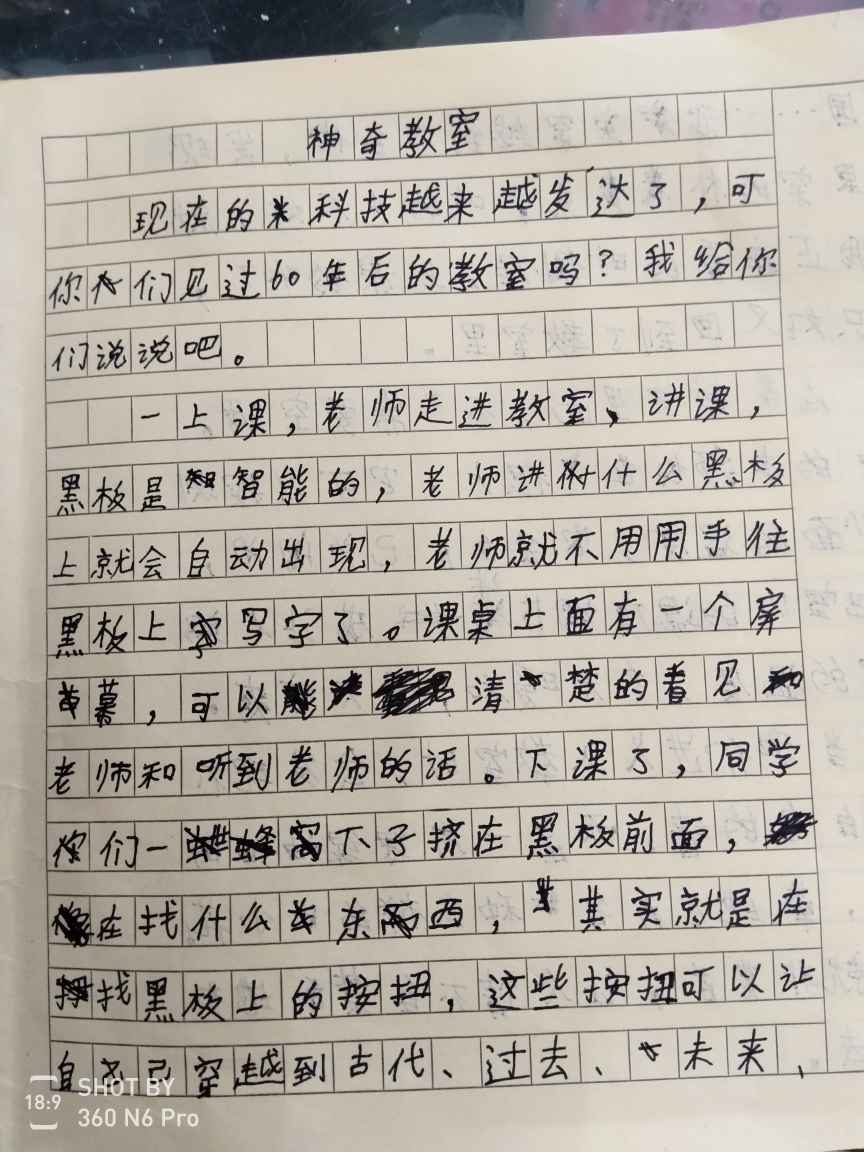 神奇教室
现在的科技越来越发达了，可
你们见过60年后的教室吗？我给你
们说说吧。
一上课，老师走进教室，讲课，
黑板是智能的，老师讲什么黑板
上就会自动出现，老师就不用用手往
黑板上写字了。课桌上面有一个屏
幕，可以清楚的看见
老师和听到老师的话。下课了，同学
们一下子挤在黑板前面，
在找什么东西，其实就是在
找黑板上的按扭，这些按扭可以让
自己穿越到古代、过去、未来、
SHOT BY
18:9
360 N6 Pro